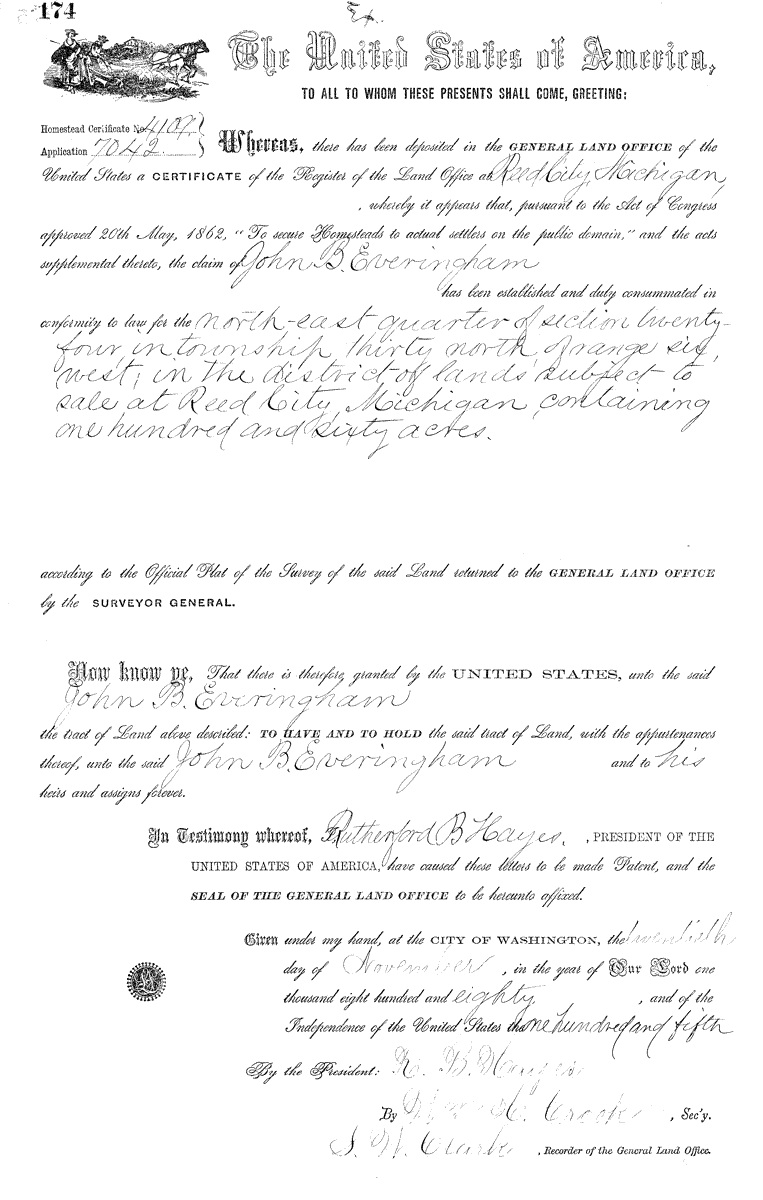 174
Ex.
The United States of America,
TO ALL TO WHOM THESE PRESENTS SHALL COME, GREETING:
Homestead Certificate No. 4107
Application 7042
Whereas, there has been deposited in the GENERAL LAND OFFICE of the
United States a CERTIFICATE of the Register of the Land Office at Reed City, Michigan,
, whereby it appears that, pursuant to the Act of Congress
approved 20th May, 1862, “To secure Homesteads to actual settlers on the public domain,” and the acts
supplemental thereto, the claim of John B. Everingham
has been established and duly consummated in
conformity to law for the north-east quarter of section twenty-
four in township thirty north of range six,
west, in the district of lands subject to
sale at Reed City, Michigan, containing
one hundred and sixty acres.
according to the Official Plat of the Survey of the said Land returned to the GENERAL LAND OFFICE
by the SURVEYOR GENERAL.
Now know ye, That there is therefore granted by the UNITED STATES, unto the said
John B. Everingham
the tract of Land above described: TO HAVE AND TO HOLD the said tract of Land, with the appurtenances
thereof, unto the said John B. Everingham and to his
heirs and assigns forever.
In Testimony whereof, I, Rutherford B Hayes, , PRESIDENT OF THE
UNITED STATES OF AMERICA, have caused these letters to be made Patent, and the
SEAL OF THE GENERAL LAND OFFICE to be hereunto affixed.
Given under my hand, at the CITY OF WASHINGTON, the twentieth
day of November , in the year of Our Lord one
thousand eight hundred and eighty , and of the
Independence of the United States the one hundred and fifth
By the President: R. B. Hayes
By Crook , Sec'y.
S. W. Clark , Recorder of the General Land Office.